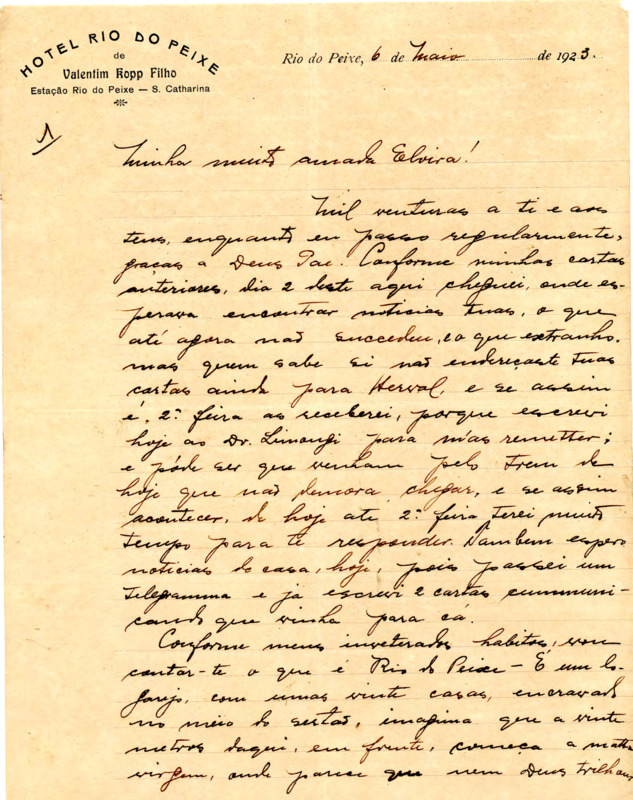 HOTEL RIO DO PEIXE
de
Valentim Kopp Filho
Estação Rio do Peixe — S. Catharina
Rio do Peixe, 6 de Maio de 1923.
1
Minha muito amada Elvira!
Mil venturas a ti e aos
teus, enquanto eu passo regularmente,
graças a Deus Pae. Conforme minhas cartas
anteriores, dia 2 deste aqui cheguei, onde es-
perava encontrar noticias tuas, o que
até agora não succedeu, e o que extranho.
mas quem sabe si não endereçaste tuas
cartas ainda para Herval, e se assim
é, 2ª feira as receberei, porque escrevi
hoje ao Dr. Limongi para m'as remetter;
e póde ser que venham pelo trem de
hoje que não demora chegar, e se assim
acontecer, de hoje ate 2ª feira, terei muito
tempo para te responder. Tambem espero
noticias de casa, hoje, pois passei um
telegramma e já escrevi 2 cartas cummuni-
cando que vinha para cá.
Conforme meus inveterados habitos, vou
contar-te o que é Rio do Peixe — É um lo-
garejo, com umas vinte casas, encravado
no meio do sertão, imagina que a vinte
metros daqui, em frente, começa a matta
virgem, onde parece que nem Deus trilhou